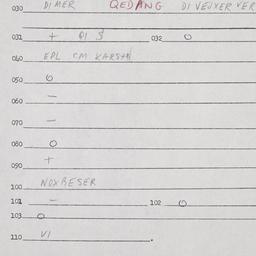 030 DI MER QEDANG DI VEJXER VER
031 + 01 $ 032 O
040 EPL CM KARSTN
050 O
060 —
070 —
080 O
090 +
100 NOXBESER
101 — 102 O
103 O
110 VI